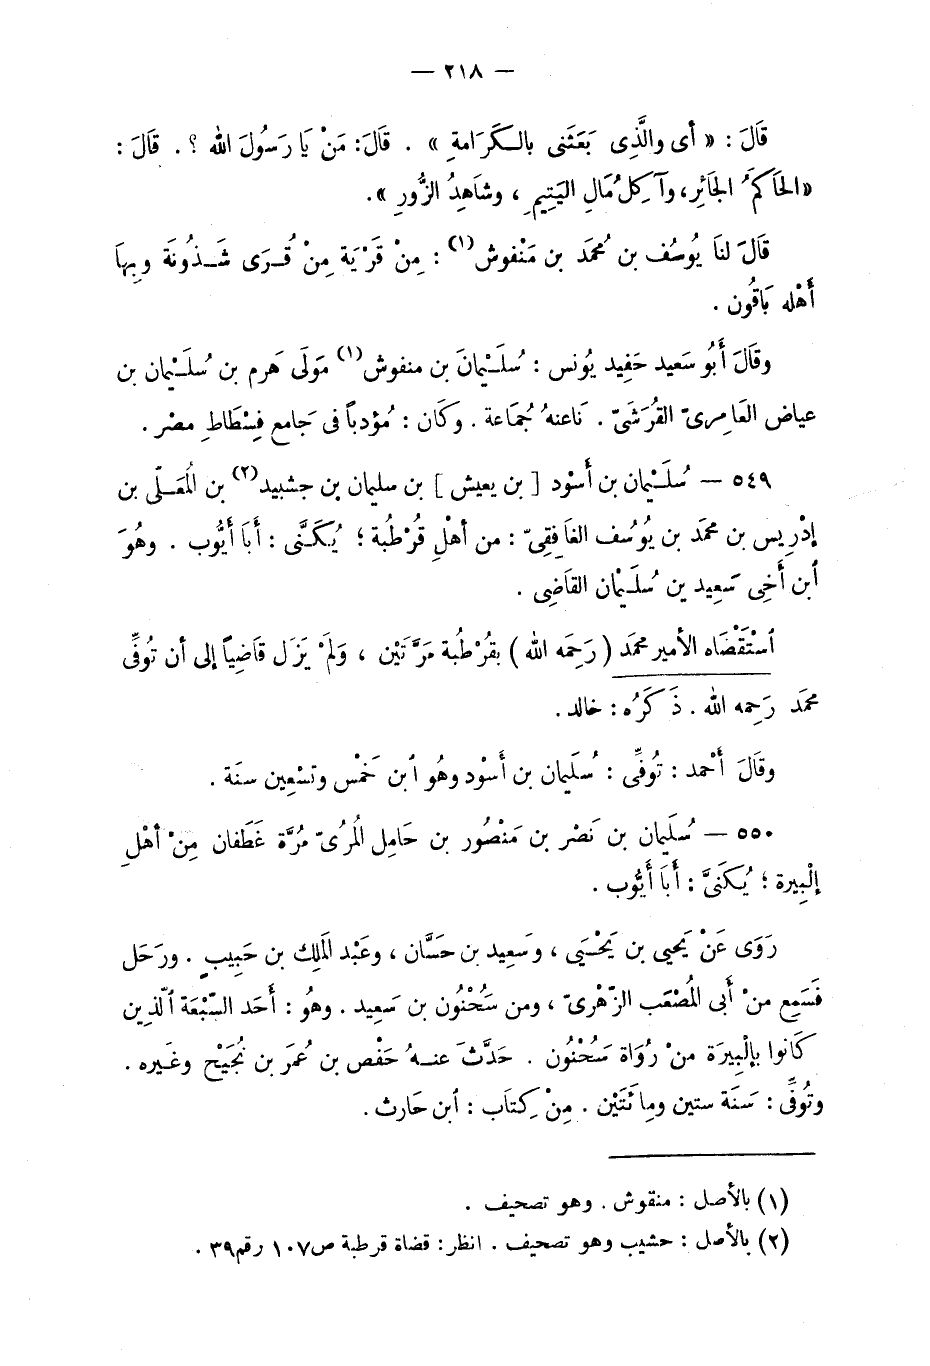 — ٢١٨ —
قَالَ : « أى والَّذِى بَعَثَنى بالـكَرَامةِ » . قَالَ: مَنْ يَا رَسُولَ الله ؟ . قَالَ :
«الحَاكمُ الجَائِر، وآكِلُ مَالِ اليَتِيمِ ، وشَاهِدُ الزُّورِ ».
قَالَ لنَا يُوسُف بن مُحمَد بن مَنْفوش(١) : مِنْ قَرْيَة مِنْ قُـرَى شَـذُونَة وبِهَا
أَهْله بَاقُون .
وقَالَ أَبُو سَعيد حَفِيد يُونس : سُلَـيْمانَ بن منفوش(١) مَولَى هَرم بن سُلَـيْمان بن
عياض العَامِرىّ القُرَشَىّ . نَاعنهُ جُمَاعة . وكَان : مُؤدباً فى جَامع فِسْطَاطِ مصْر .
٥٤٩ — سُلَـيْمان بن أَسْوَد [ بن يعيش ] بن سليمان بن جشبيد(٢) بن المُعَـلّى بن
إدْرِيس بن محمَد بن يُوُسُف الغَافِقِىّ : من أهْلِ قُرْطُبة ؛ يُكَـنَّى : أَبَا أَيُّوب . وهُوَ
ٱبن أَخِى سَعِيد بن سُلَـيْمان القَاضِى .
ٱسْتَقْضَاه الأمير محمَد ( رَحِمَه الله ) بقُرْطُبة مَرَّتَيْن ، وَلَمْ يزَل قَاضِيًا إلى أن تُوفَّى
محمَد رَحِمه الله . ذَكَرُه : خالد .
وقَالَ أَحْمد : تُوفِّى : سُلَيمان بن أَسْوَد وهُو ٱبن خَمْس وتسْعِين سنَة .
٥٥٠ — سُلَيمان بن نَصْر بن مَنْصُور بن حَامِل المُرىّ مُرَّة غَطَفان مِنْ أهْلِ
إلْبِيرة ؛ يُـكَنَىَّ : أَبَا أَيُّوب .
رَوَى عَنْ يَحيى بن يَحْـيَى ، وسَعِيد بن حَسَّان ، وعَبْد المَلِك بن حَبِيب . ورَحَل
فَسَمِع منْ أَبى المُصْعَب الزّهْرىّ ، ومن سَُحْنُون بن سَعِيد . وهُو : أَحَد السّبْعَة ٱلّذِين
كَانوا بإلْبِيرَة منْ رُوَاة سَُحْنُون . حَدَّثَ عنـهُ حَفْص بن عُمَر بن نُجَيْح وغَيره .
وتُوفِّى : سَنَة ستين ومِائَتَيْن . مِنْ كِتَاب : ٱبن حَارث .
(١) بالأصل : منقوش . وهو تصحيف .
(٢) بالأصل : حشيب وهو تصحيف . انظر : قضاة قرطبة ص١٠٧ رقم٣٩ .